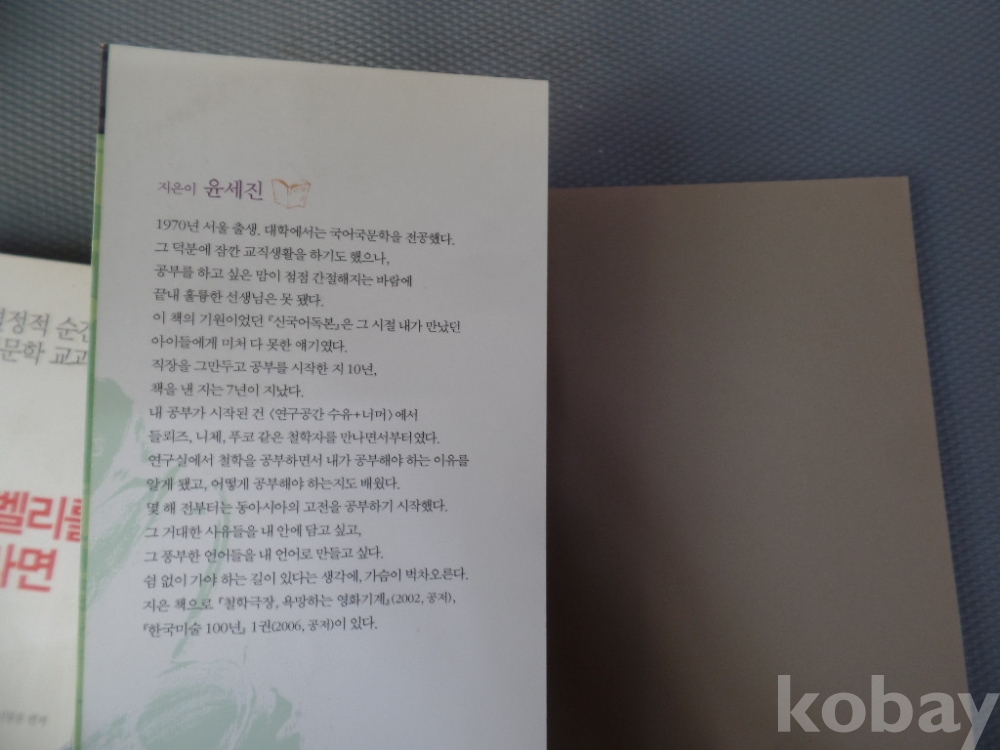 지은이 윤세진
1970년 서울 출생. 대학에서는 국어국문학을 전공했다.
그 덕분에 잠깐 교직생활을 하기도 했으나,
공부를 하고 싶은 맘이 점점 간절해지는 바람에
끝내 훌륭한 선생님은 못 됐다.
이 책의 기원이었던 『신국어독본』은 그 시절 내가 만났던
아이들에게 미처 다 못한 얘기였다.
직장을 그만두고 공부를 시작한 지 10년,
책을 낸 지는 7년이 지났다.
내 공부가 시작된 건 〈연구공간 수유+너머〉에서
들뢰즈, 니체, 푸코 같은 철학자를 만나면서부터였다.
연구실에서 철학을 공부하면서 내가 공부해야 하는 이유를
알게 됐고, 어떻게 공부해야 하는지도 배웠다.
몇 해 전부터는 동아시아의 고전을 공부하기 시작했다.
그 거대한 사유들을 내 안에 담고 싶고,
그 풍부한 언어들을 내 언어로 만들고 싶다.
쉼 없이 가야 하는 길이 있다는 생각에, 가슴이 벅차오른다.
지은 책으로 『철학극장, 욕망하는 영화기계』(2002, 공저),
『한국미술 100년』 1권(2006, 공저)이 있다.
정적 순간
문학 교과
벨리를
라면
kobay